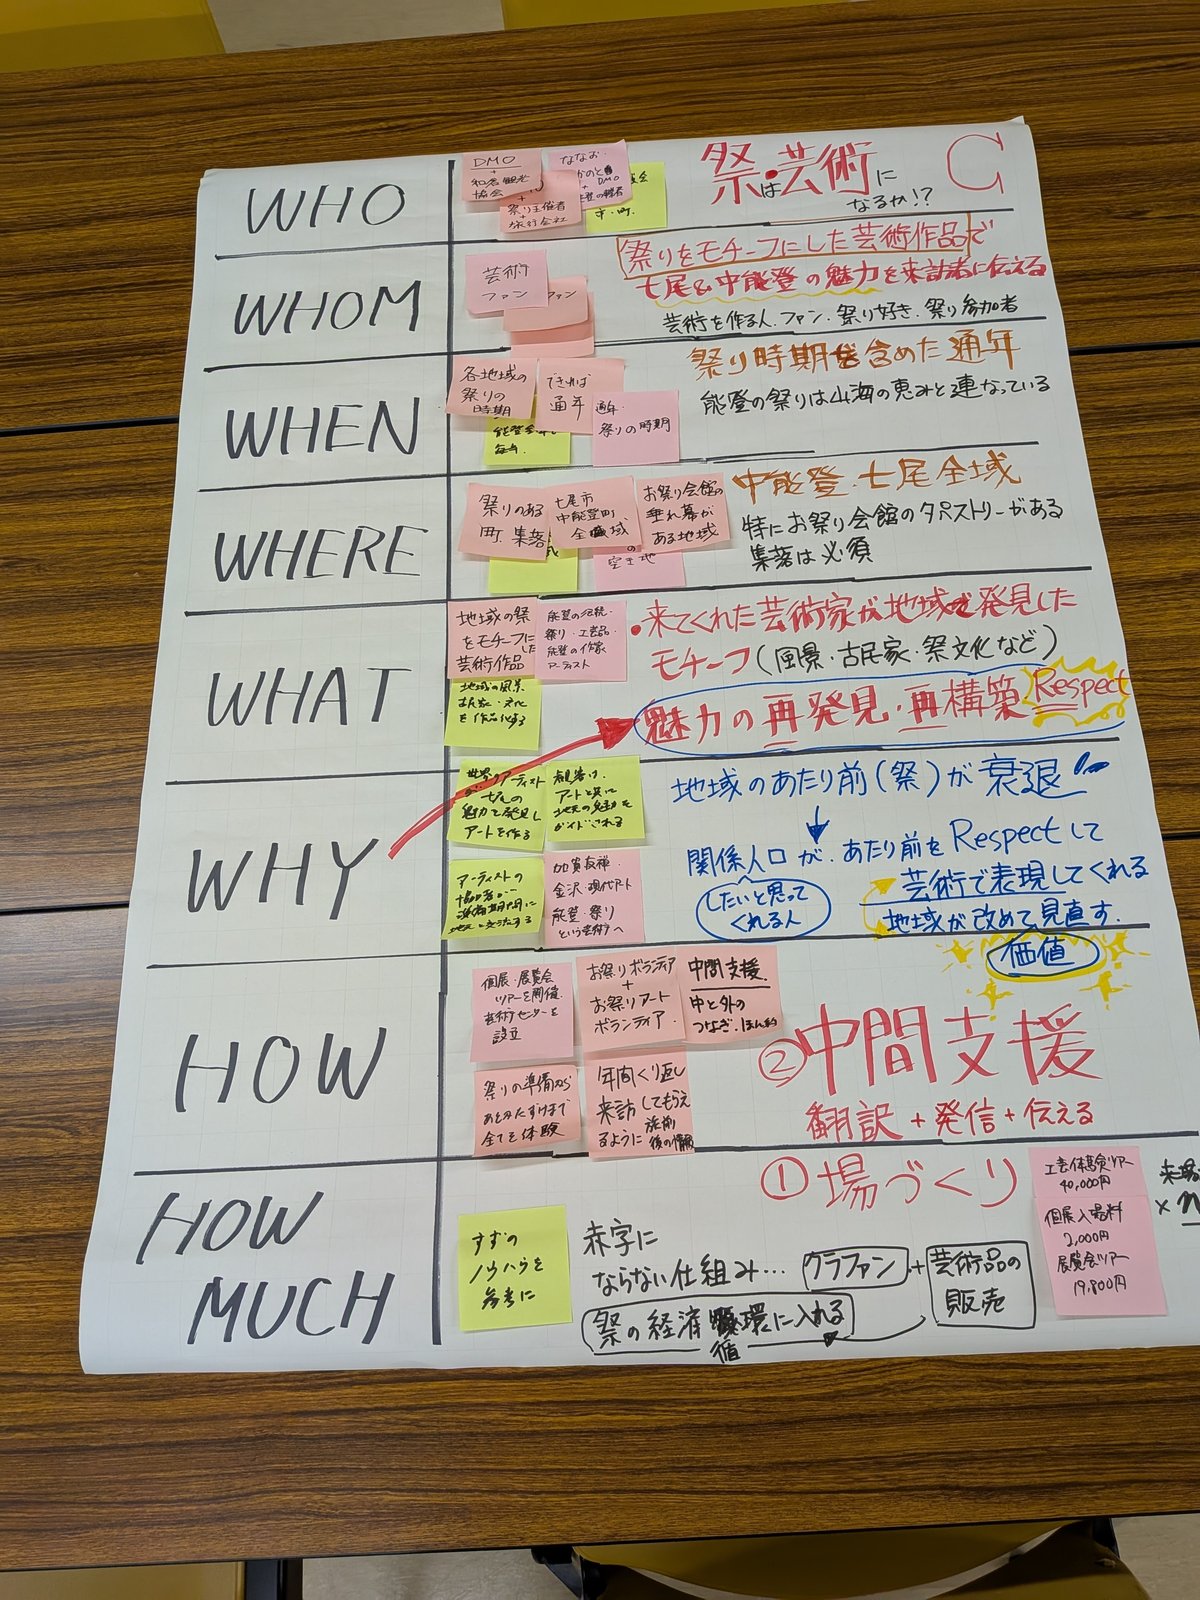 祭は芸術に
なるか!?
C
WHO
DMO
+
和倉観光
協会
ななお・
DMO
+
祭り主催者
+
旅行会社
祭りをモチーフにした芸術作品で
七尾&中能登の魅力を来訪者に伝える
芸術を作る人、ファン、祭り好き、祭り参加者
WHOM
芸術
ファン
ファン
WHEN
各地域の
祭りの
時期
できれば
通年
通年・
祭りの時期
毎年
祭り時期を含めた通年
能登の祭りは山海の恵みと連なっている
WHERE
祭りのある
町、集落
七尾市
中能登町
全域
お祭り会館の
垂れ幕が
ある地域
の
空き地
中能登、七尾全域
特にお祭り会館のタペストリーがある
集落は必須
WHAT
地域の祭
をモチーフにした
芸術作品
能登の伝統
祭り・工芸品・
能登の作家
アーティスト
地域の風景
古民家・文化
を作品化する
・来てくれた芸術家が地域で発見した
モチーフ(風景・古民家・祭文化など)
魅力の再発見・再構築 Respect
WHY
世界のアーティスト
が
魅力を発見し
アートを作る
観客は、
アートと共に
地元の魅力を
ガイドされる
アーティストの
地元と交流する
加賀友禅・
金沢・現代アート
能登・祭り
という芸術へ
地域のあたり前(祭)が衰退
↓
関係人口が、あたり前をRespectして
したいと思って
くれる人
芸術で表現してくれる
地域が改めて見直す.
価値
HOW
個展・展覧会
ツアーを開催.
芸術センターを
設立
お祭りボランティア
+
お祭りアート
ボランティア
中間支援
中と外の
つなぎ、ほん約
祭りの準備から
あとかたずけまで
全てを体験
年間くり返し
来訪してもらえ
るように
施術
後の情報
②中間支援
翻訳+発信+伝える
①場づくり
HOW
MUCH
すずの
ノウハウを
参考に
赤字に
ならない仕組み… クラファン + 芸術品の
販売
祭の経済循環に入れる
工芸体験ツアー
40,000円
個展入場料
2,000円
展覧会ツアー
19,800円
来場
×n